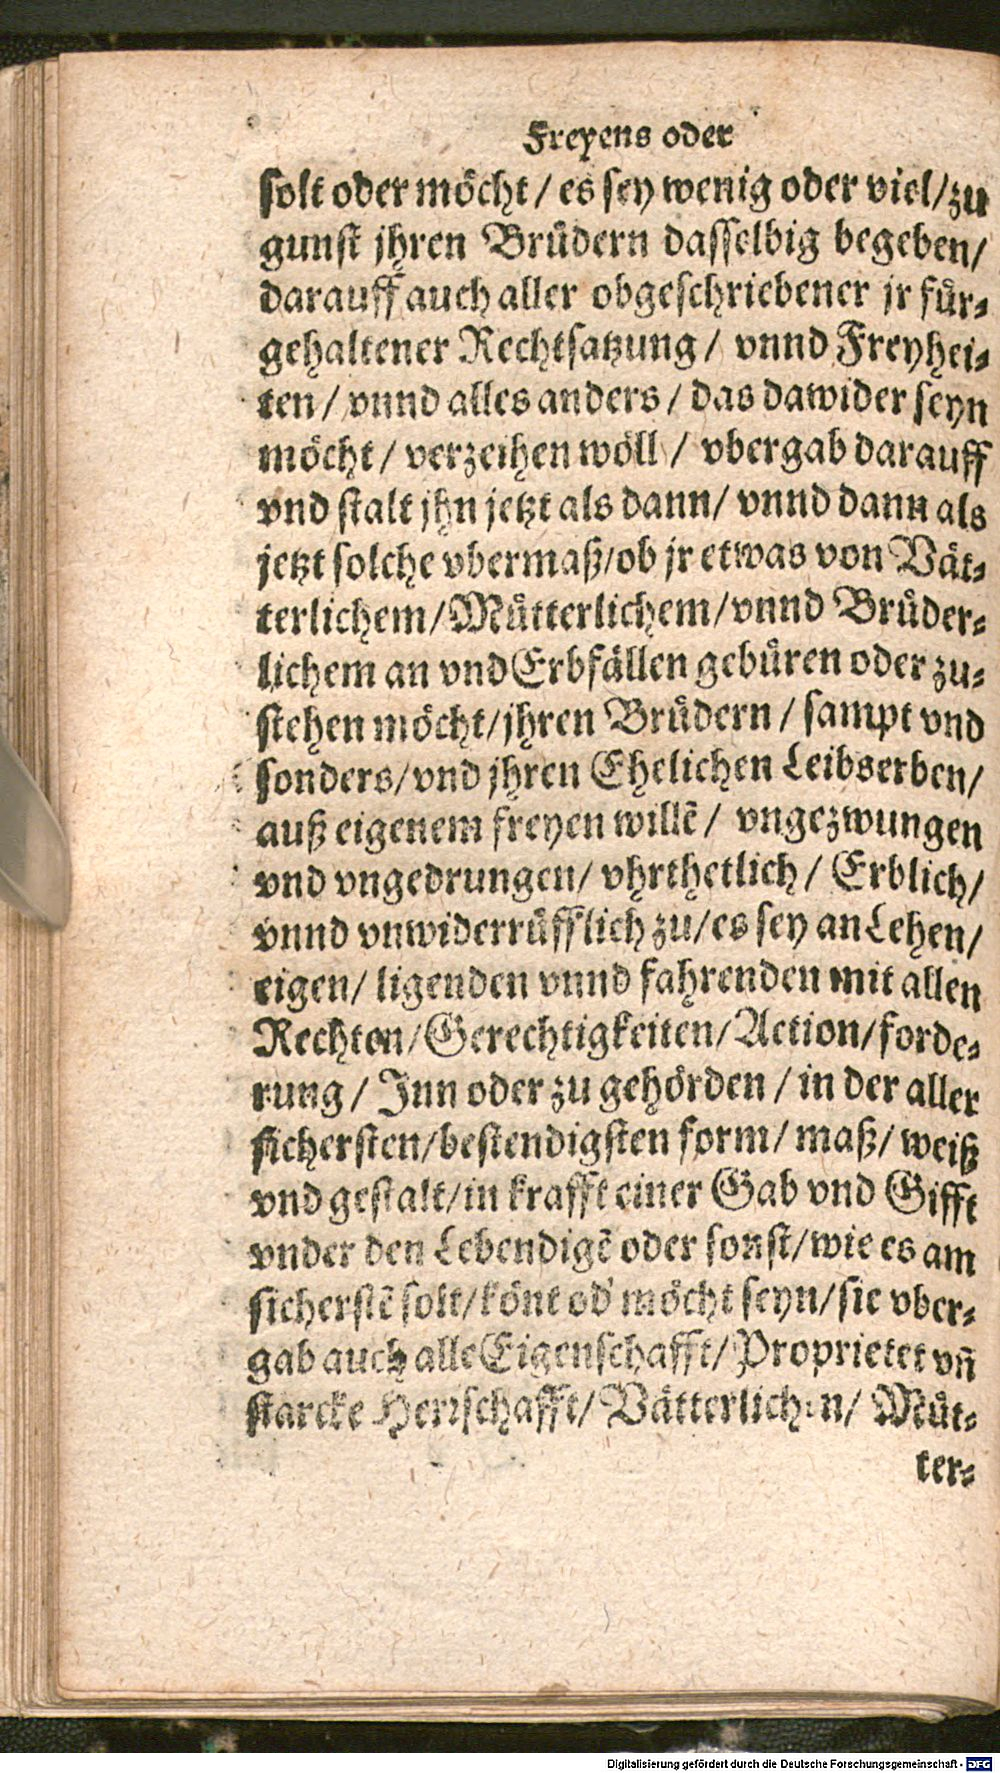 Freyens oder
solt oder möcht / es sey wenig oder viel/zu
gunst jhren Brüdern dasselbig begeben/
darauff auch aller obgeschriebener jr für-
gehaltener Rechtsatzung / vnnd Freyhei-
ten / vnnd alles anders / das dawider seyn
möcht / verzeihen wöll / vbergab darauff
vnd stalt jhn jetzt als dann/ vnnd dann als
jetzt solche vbermaß/ob jr etwas von Vät-
terlichem/Mütterlichem/vnnd Brüder-
lichem an vnd Erbfällen gebüren oder zu-
stehen möcht/jhren Brüdern / sampt vnd
sonders/vnd jhren Ehelichen Leibserben/
auß eigenem freyen willẽ / vngezwungen
vnd vngedrungen/ vhrthetlich/ Erblich/
vnnd vnwiderrüfflich zu/es sey an Lehen/
eigen/ ligenden vnnd fahrenden mit allen
Rechten/Gerechtigkeiten/Action/forde-
rung / Inn oder zu gehörden / in der aller
sichersten/bestendigsten form/ maß/ weiß
vnd gestalt/in krafft einer Gab vnd Gifft
vnder den Lebendigẽ oder sonst/wie es am
sicherstẽ solt/könt od' möcht seyn/sie vber-
gab auch alle Eigenschafft/Proprietet vñ
starcke Herrschafft/ Vätterlichen/ Müt-
ter-
Digitalisierung gefördert durch die Deutsche Forschungsgemeinschaft - DFG